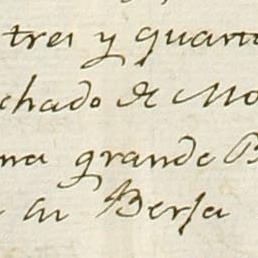 tres y quarto
chado de Mo
na grande B
en Berja